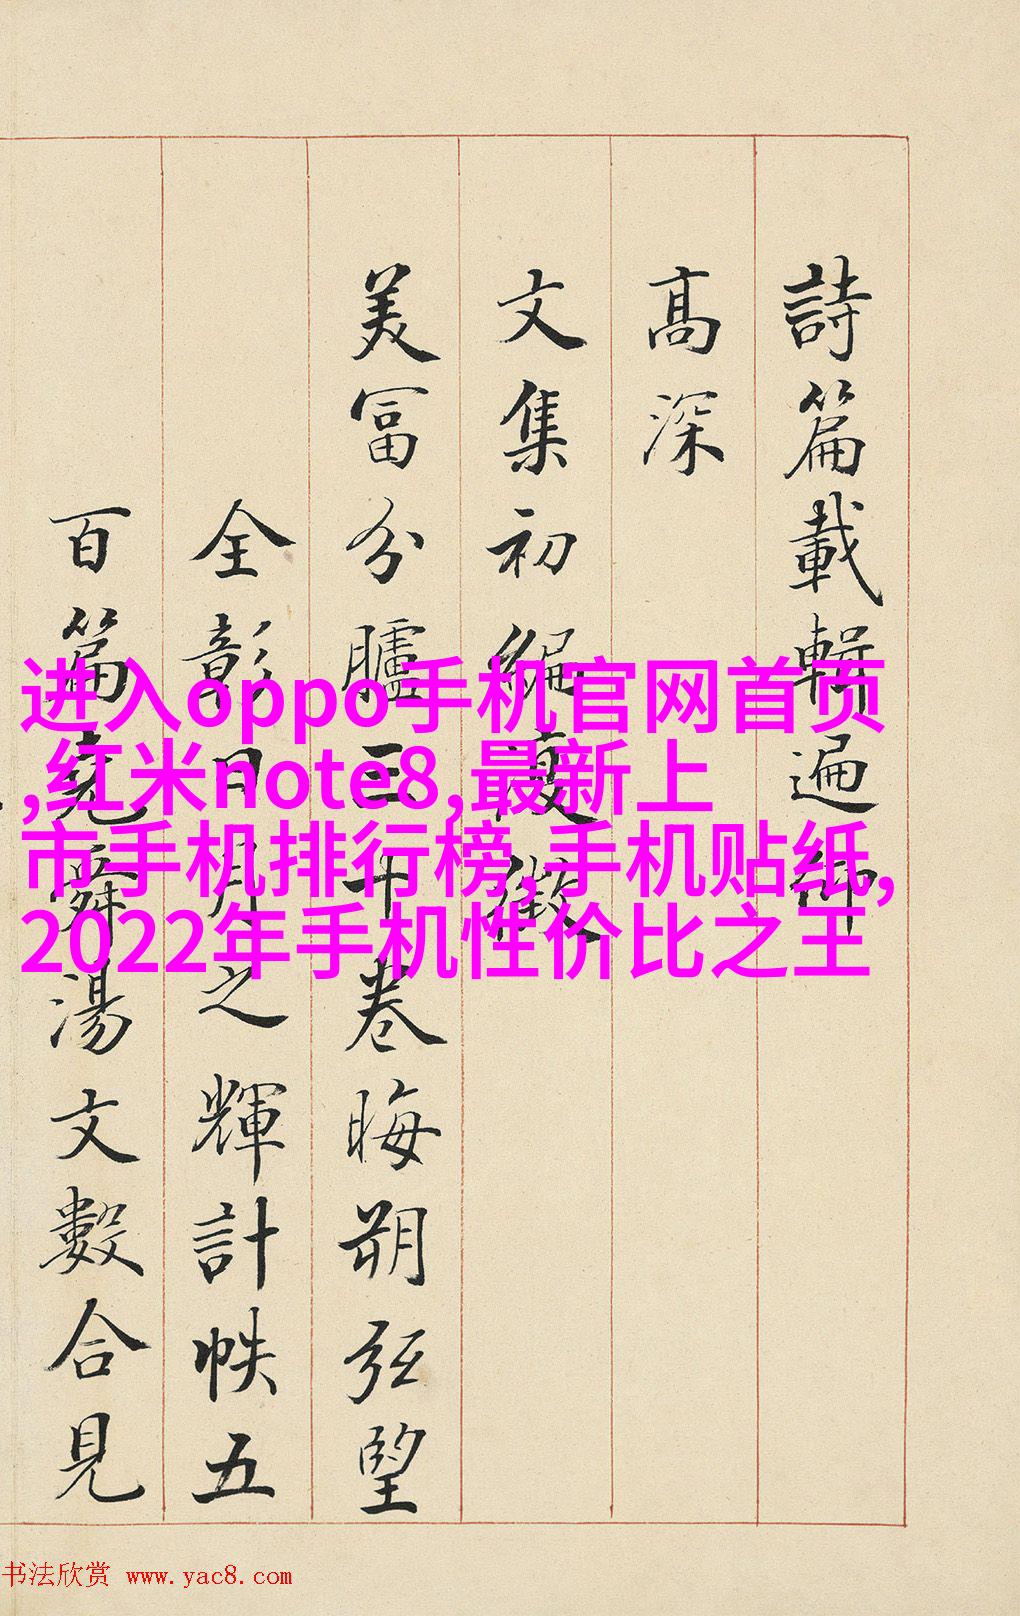 詩篇載輯遍卸
高深
文集初編復徵
美富分臚三十卷晦朔弦望
全彰日月之輝計帙五
百篇堯舜湯文數合見
进入oppo手机官网首页
,红米note8,最新上
市手机排行榜,手机贴纸,
2022年手机性价比之王
书法欣赏 www.yac8.com